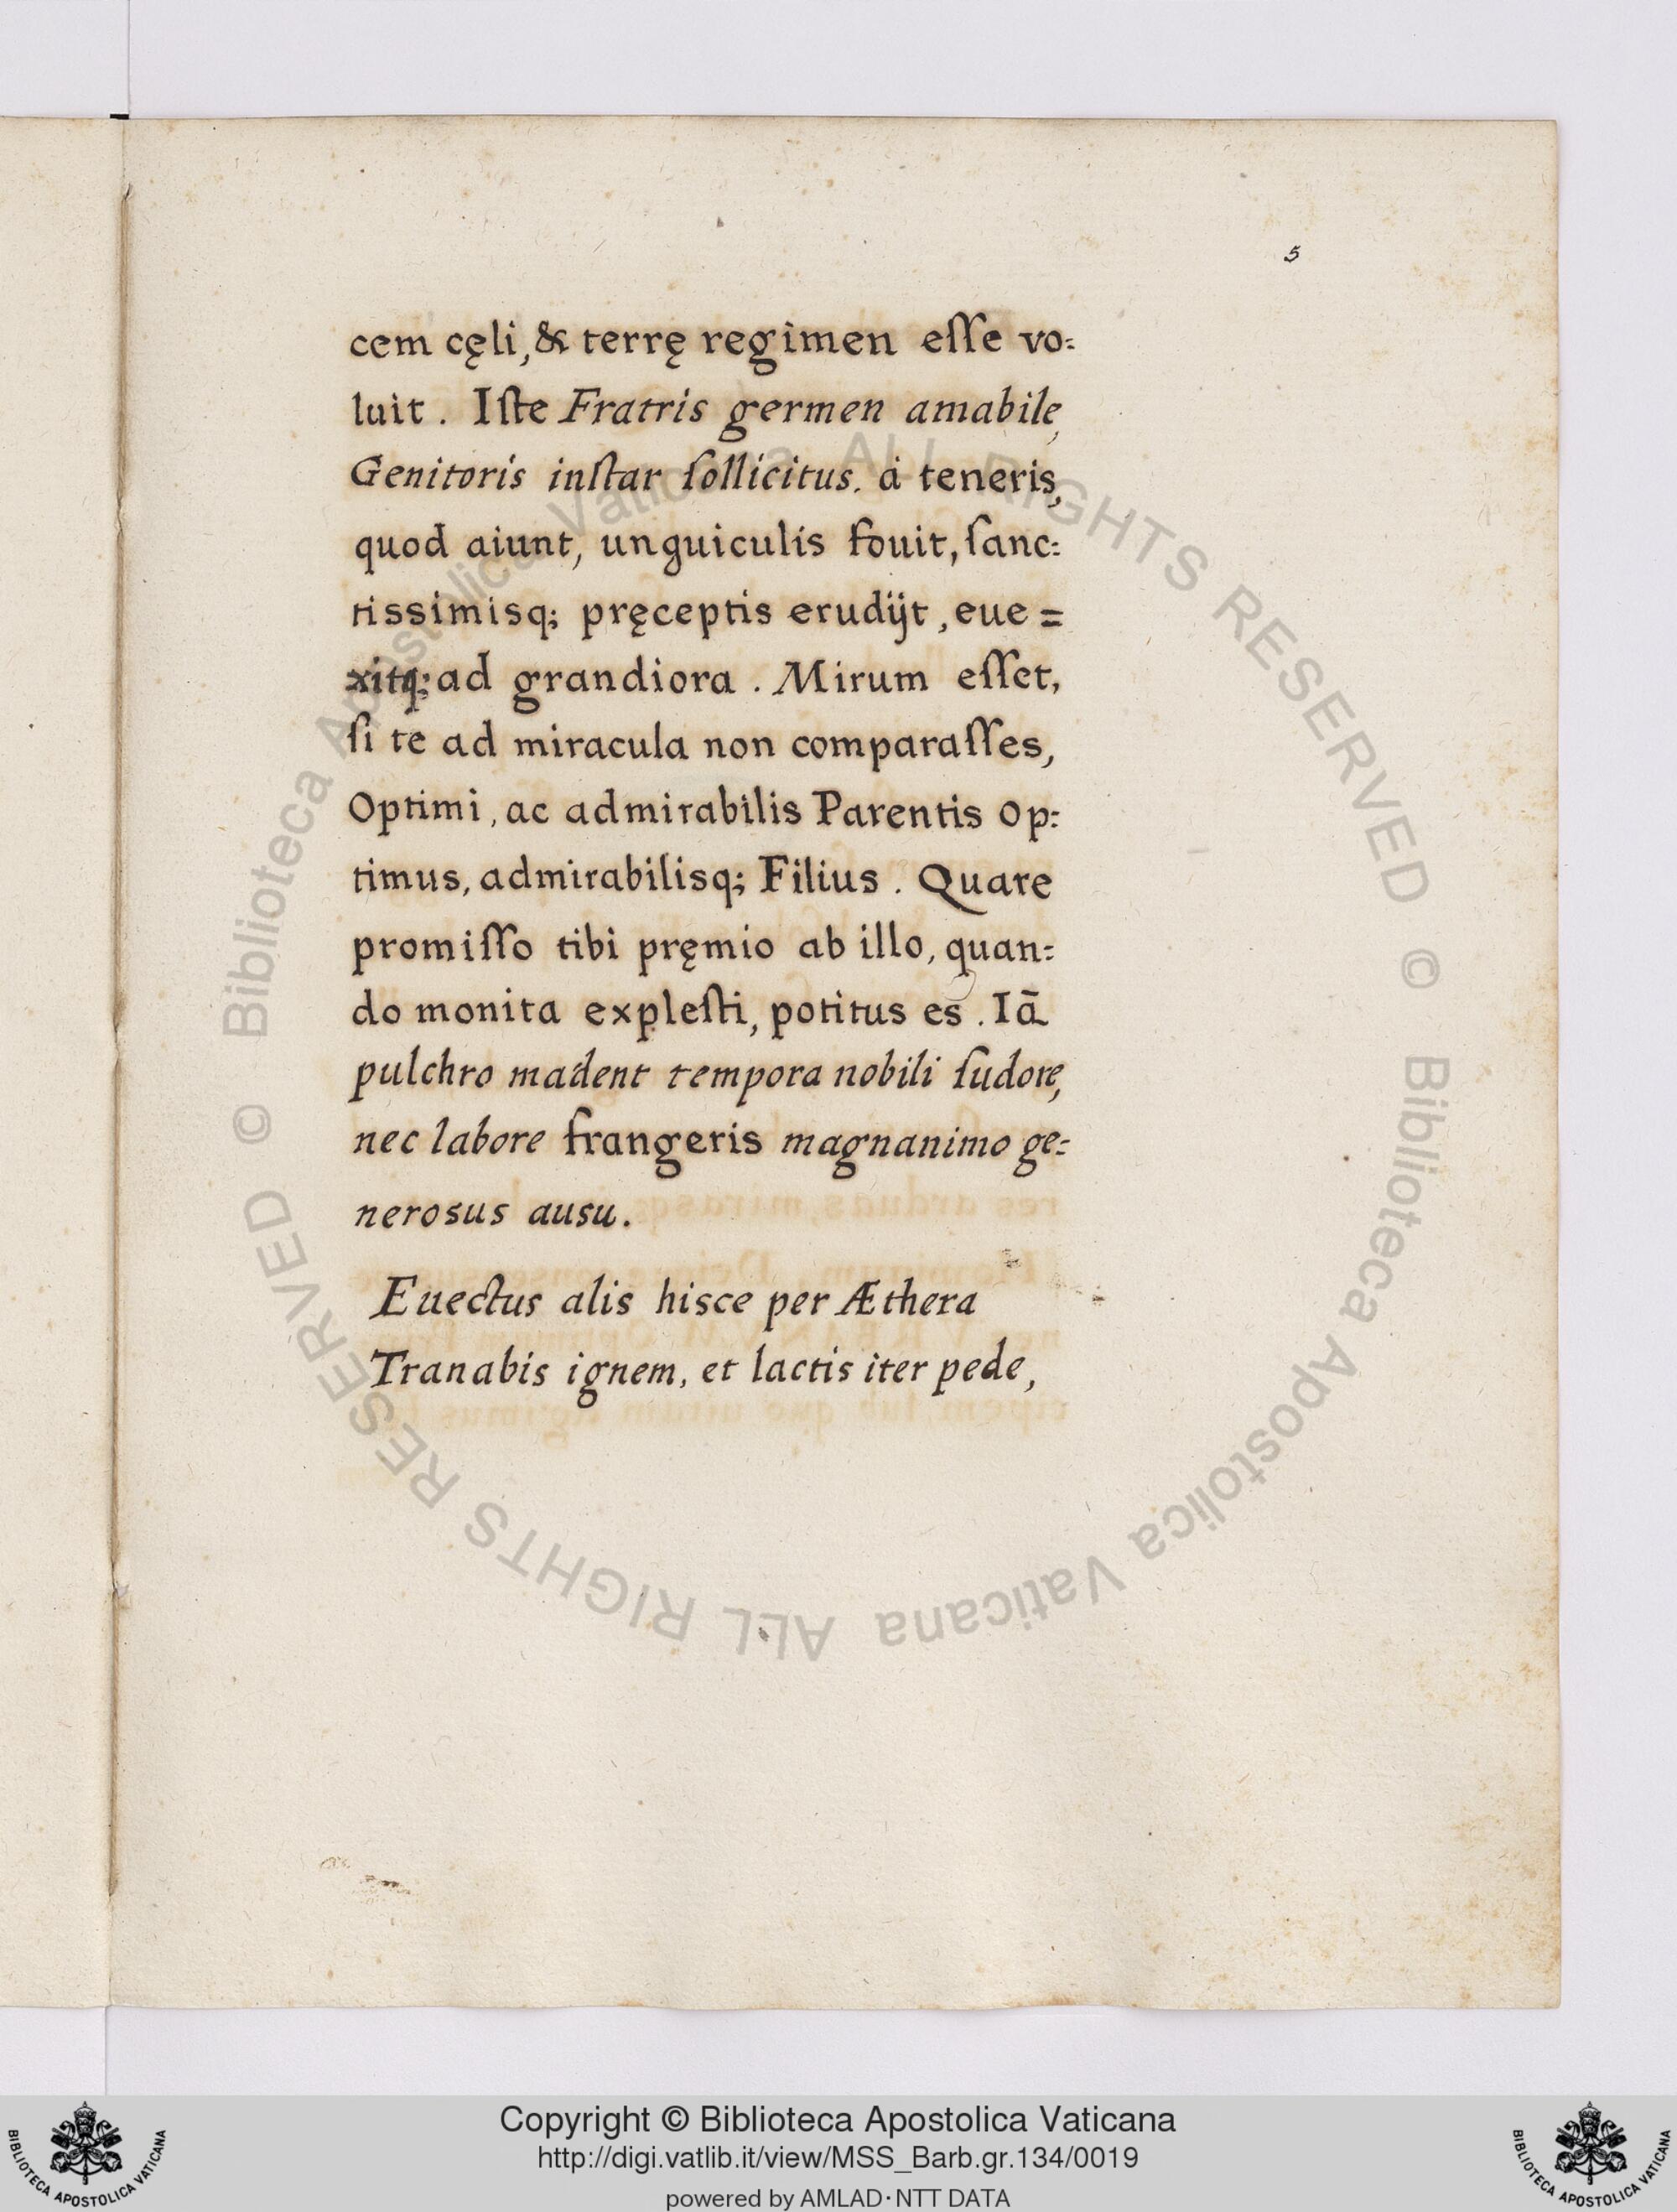 5
cem cęli, & terrę regimen eſſe vo:
luit. Iſte Fratris germen amabile,
Genitoris inſtar ſollicitus. à teneris,
quod aiunt, unguiculis fouit, ſanc:
tissimisq; pręceptis erudijt, eue=
xitq; ad grandiora. Mirum eſſet,
ſi te ad miracula non comparaſſes,
Optimi, ac admirabilis Parentis Op:
timus, admirabilisq; Filius. Quare
promiſſo tibi pręmio ab illo, quan:
do monita expleſti, potitus es. Iā
pulchro madent tempora nobili ſudore,
nec labore frangeris magnanimo ge:
nerosus ausu.
Euectus alis hisce per Æthera
Tranabis ignem, et lactis iter pede,
© Biblioteca Apostolica Vaticana ALL RIGHTS RESERVED © Biblioteca Apostolica Vaticana ALL RIGHTS RESERVED
Copyright © Biblioteca Apostolica Vaticana
http://digi.vatlib.it/view/MSS_Barb.gr.134/0019
powered by AMLAD·NTT DATA
BIBLIOTECA APOSTOLICA VATICANA
BIBLIOTECA APOSTOLICA VATICANA